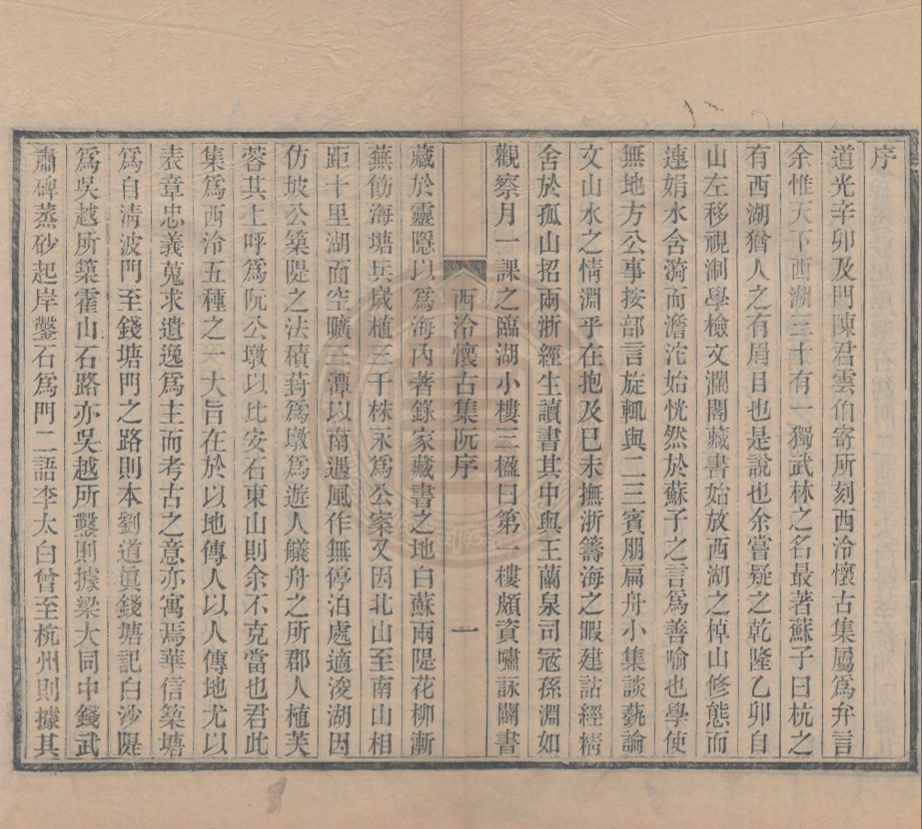 序
道光辛卯及門陳君雲伯寄所刻西泠懷古集屬爲弁言
余惟天下西湖三十有一獨武林之名最著蘇子曰杭之
有西湖猶人之有眉目也是說也余嘗疑之乾隆乙卯自
山左移視淛學檢文瀾閣藏書始放西湖之棹山修態而
連娟水含漪而澹沱始恍然於蘇子之言爲善喻也學使
無地方公事按部言旋輒與二三賓朋扁舟小集談蓺論
文山水之情淵乎在抱及己未撫浙籌海之暇建詁經精
舍於孤山招兩浙經生讀書其中與王蘭泉司冦孫淵如
觀察月一課之臨湖小樓三楹曰第一樓頗資嘯詠闢書
西泠懷古集阮序 一
藏於靈隱以爲海內著錄家藏書之地白蘇兩隄花柳漸
蕪飭海塘兵歲植三千株永爲公案又因北山至南山相
距十里湖面空曠三潭以南遇風作無停泊處適浚湖因
仿坡公築隄之法積葑爲墩爲遊人艤舟之所郡人植芙
蓉其上呼爲阮公墩以比安石東山則余不克當也君此
集爲西泠五種之一大旨在於以地傳人以人傳地尤以
表章忠義蒐求遺逸爲主而考古之意亦寓焉華信築塘
爲自清波門至錢塘門之路則本劉道眞錢塘記白沙隄
爲吳越所築霍山石路亦吳越所鑿則據梁大同中錢武
肅碑蒸砂起岸鑿石爲門二語李太白曾至杭州則據其